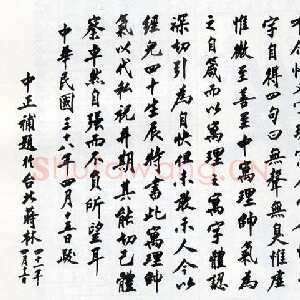 字自得四句曰無聲無臭惟虛
惟微至善至中寓理帥氣為
之自箴而以寓理之寓字體認
深切引為自快但未敢示人今以
經兒四十生辰特書此寓理帥
氣以代私祝并期其能切己體
察卓然自強而不負所望耳
中華民國三十八年四月十五日
中正補題於台北